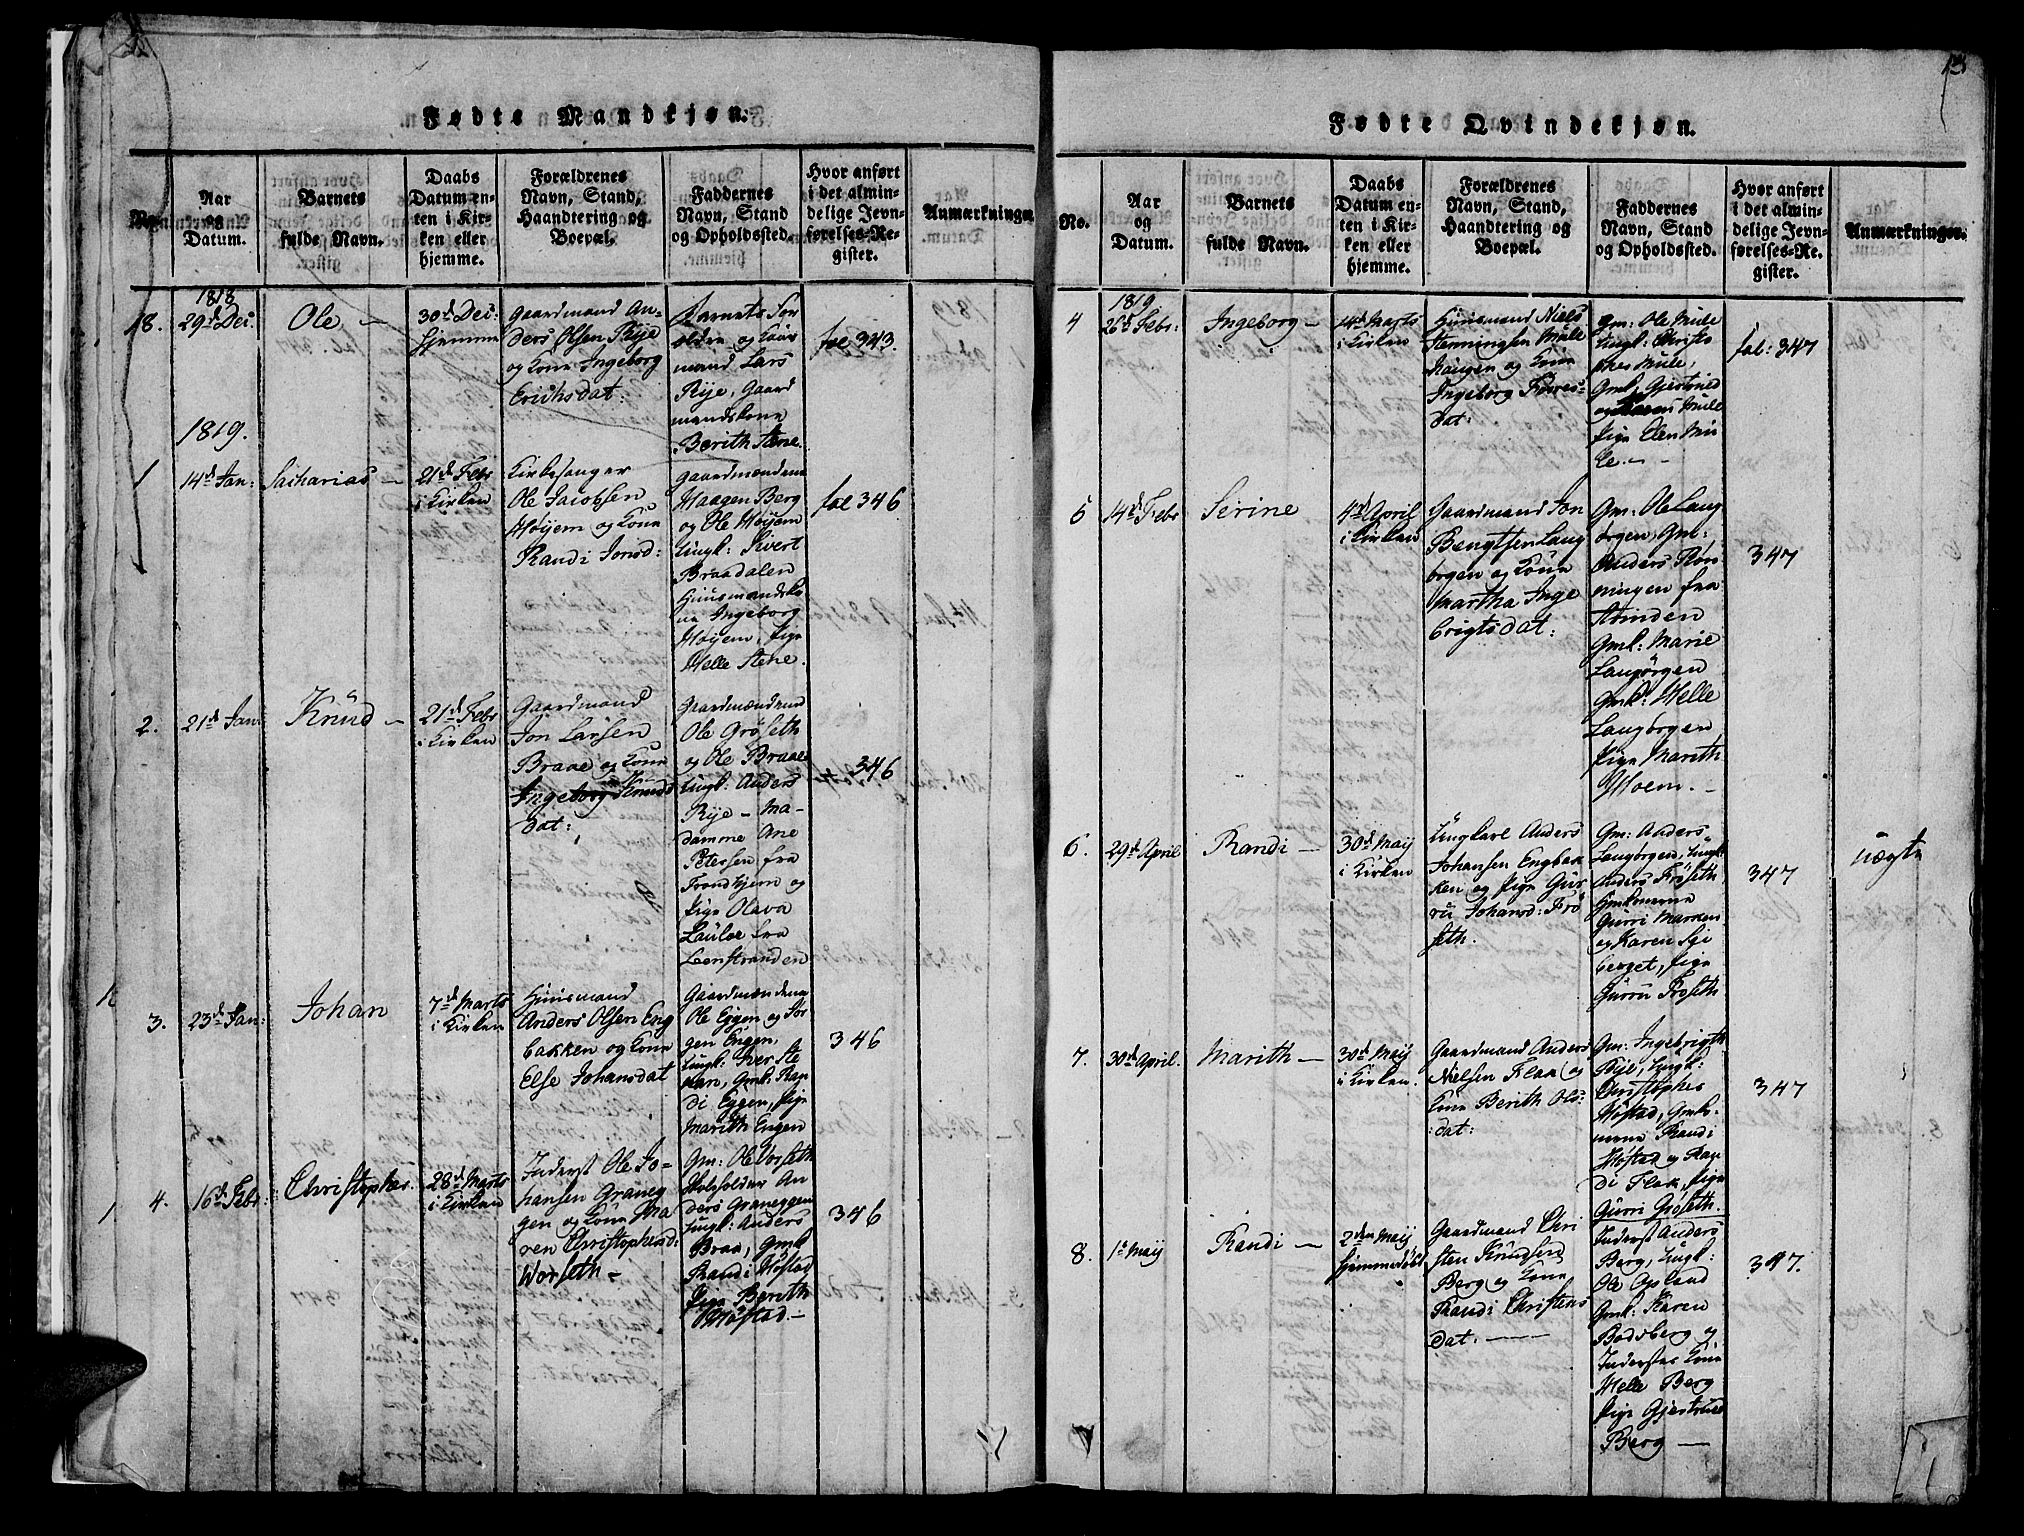 Fødte Mandkjøn.
No.
Aar
og
Datum.
Barnets
fulde Navn.
Daabs
Datum en-
ten i Kir-
ken eller
hjemme.
Forældrenes
Navn, Stand,
Haandtering og
Boepæl.
Faddernes
Navn, Stand
og Opholdssted.
Hvor anført
i det almin-
delige Jevn-
førelses-Re-
gister.
Anmærkninger.
18.
1818
29d Dec:
Ole —
30d Dec:
hjemme
Gaardmand An-
ders Olsen Rye
og Kone Ingeborg
Erichsdat:
Barnets For
ældre og Kaar
mand Lars
Rye, Gaard
mandskone
Berith Stene.
fol 343.
1819.
1
14d Jan:
Sacharias —
21d Febr
i Kirken
Kirkesanger
Ole Jacobsen
Høyem og Kone
Randi Jonsd:
Gaardmændene
Haagen Berg
og Ole Høyem
Ungk: Sivert
Braadalen
Huusmandsko
ne Ingeborg
Høyem, Pige
Helle Stene.
fol 346
2.
21d Jan:
Knud —
21d Febr
i Kirken
Gaardmand
Jon Larsen
Braae og Kone
Ingeborg Knuds
dat:
Gaardmændene
Ole Grøseth
og Ole Braae
Ungk: Anders
Rye — Ma-
damme Ane
Petersen fra
Trondhjem og
Pige Olava
Lauloe fra
Leenstranden
346
3.
23d Jan:
Johan
7d Marts
i Kirken
Huusmand
Anders Olsen Eng
bakken og Kone
Else Johansdat
Gaardmændene
Ole Eggen og Jør
gen Engen,
Ungk: Iver Ste
kan, Gmk: Ran
di Eggen, Pige
Marith Engen
346
4.
16d Febr:
Christopher.
28d Marts
i Kirken
Inderst Ole Jo-
hansen Graneg
gen og Kone Ma
ren Christophersd:
Worseth —
Gm: Ole Vorseth
Holsolder An
ders Graneggen
Ungk: Anders
Braa, Gmk
Randi Høstad
Pige Berith
Høstad. —
346
13
Fødte Qvindekjøn.
No.
Aar
og
Datum.
Barnets
fulde Navn.
Daabs
Datum en-
ten i Kir-
ken eller
hjemme.
Forældrenes
Navn, Stand,
Haandtering og
Boepæl.
Faddernes
Navn, Stand
og Opholdssted.
Hvor anført
i det almin-
delige Jevn-
førelses-Re-
gister.
Anmærkninger.
4
1819
26d Febr:
Ingeborg —
14d Marts
i Kirken
Huusmand Niels
Henningsen Mule
haugen og Kone
Ingeborg Torres-
dat:
Gm: Ole Mule
Ungk: Christo
pher Mule,
Gmk, Gjertrued
og Karen Mule
Pige Elen Mu
le. — —
fol: 347
5
14d Febr
Serine
4d April
i Kirken
Gaardmand Jon
Bengtsen Lang
ørgen og Kone
Martha Inge
brigtsdat:
Gm: Ole Lang
ørgen, Gm:
Anders Røn
ningen fra
Strinden
Gmk: Marie
Langørgen
Gmk: Helle
Langørgen
Pige Marith
Moem. —
347
6.
29d April
Randi —
30d May
i Kirken
Ungkarl Anders
Johansen Engbak
ken og Pige Gur
ru Johansd: Frø
seth.
Gm: Anders
Langørgen, Ungk:
Anders Frøseth
Gmkonerne
Gurri Marken
og Karen Sje
berget, Pige
Gurru Frøseth
347
uægte
7.
30d April.
Marith —
30d May
i Kirken.
Gaardmand Anders
Nielsen Flak og
Kone Berith Ols:
dat:
Gm: Ingebrigth
Rye, Ungk:
Christopher
Høstad, Gmko-
nerne Randi
Høstad og Ran
di Flak, Pige
Gurri Grøseth.
347
8.
1d May
Randi —
2den May
hjemmedøbt
Gaardmand Chri
sten Knudsen
Berg og Kone
Randi Christens
dat. —
Inderst Anders
Berg, Ungk:
Ole Opland
Gmk: Karen
Bodsberg og
Inderstes Kone
Helle Berg
Pige Gjertrue
Berg —
347.